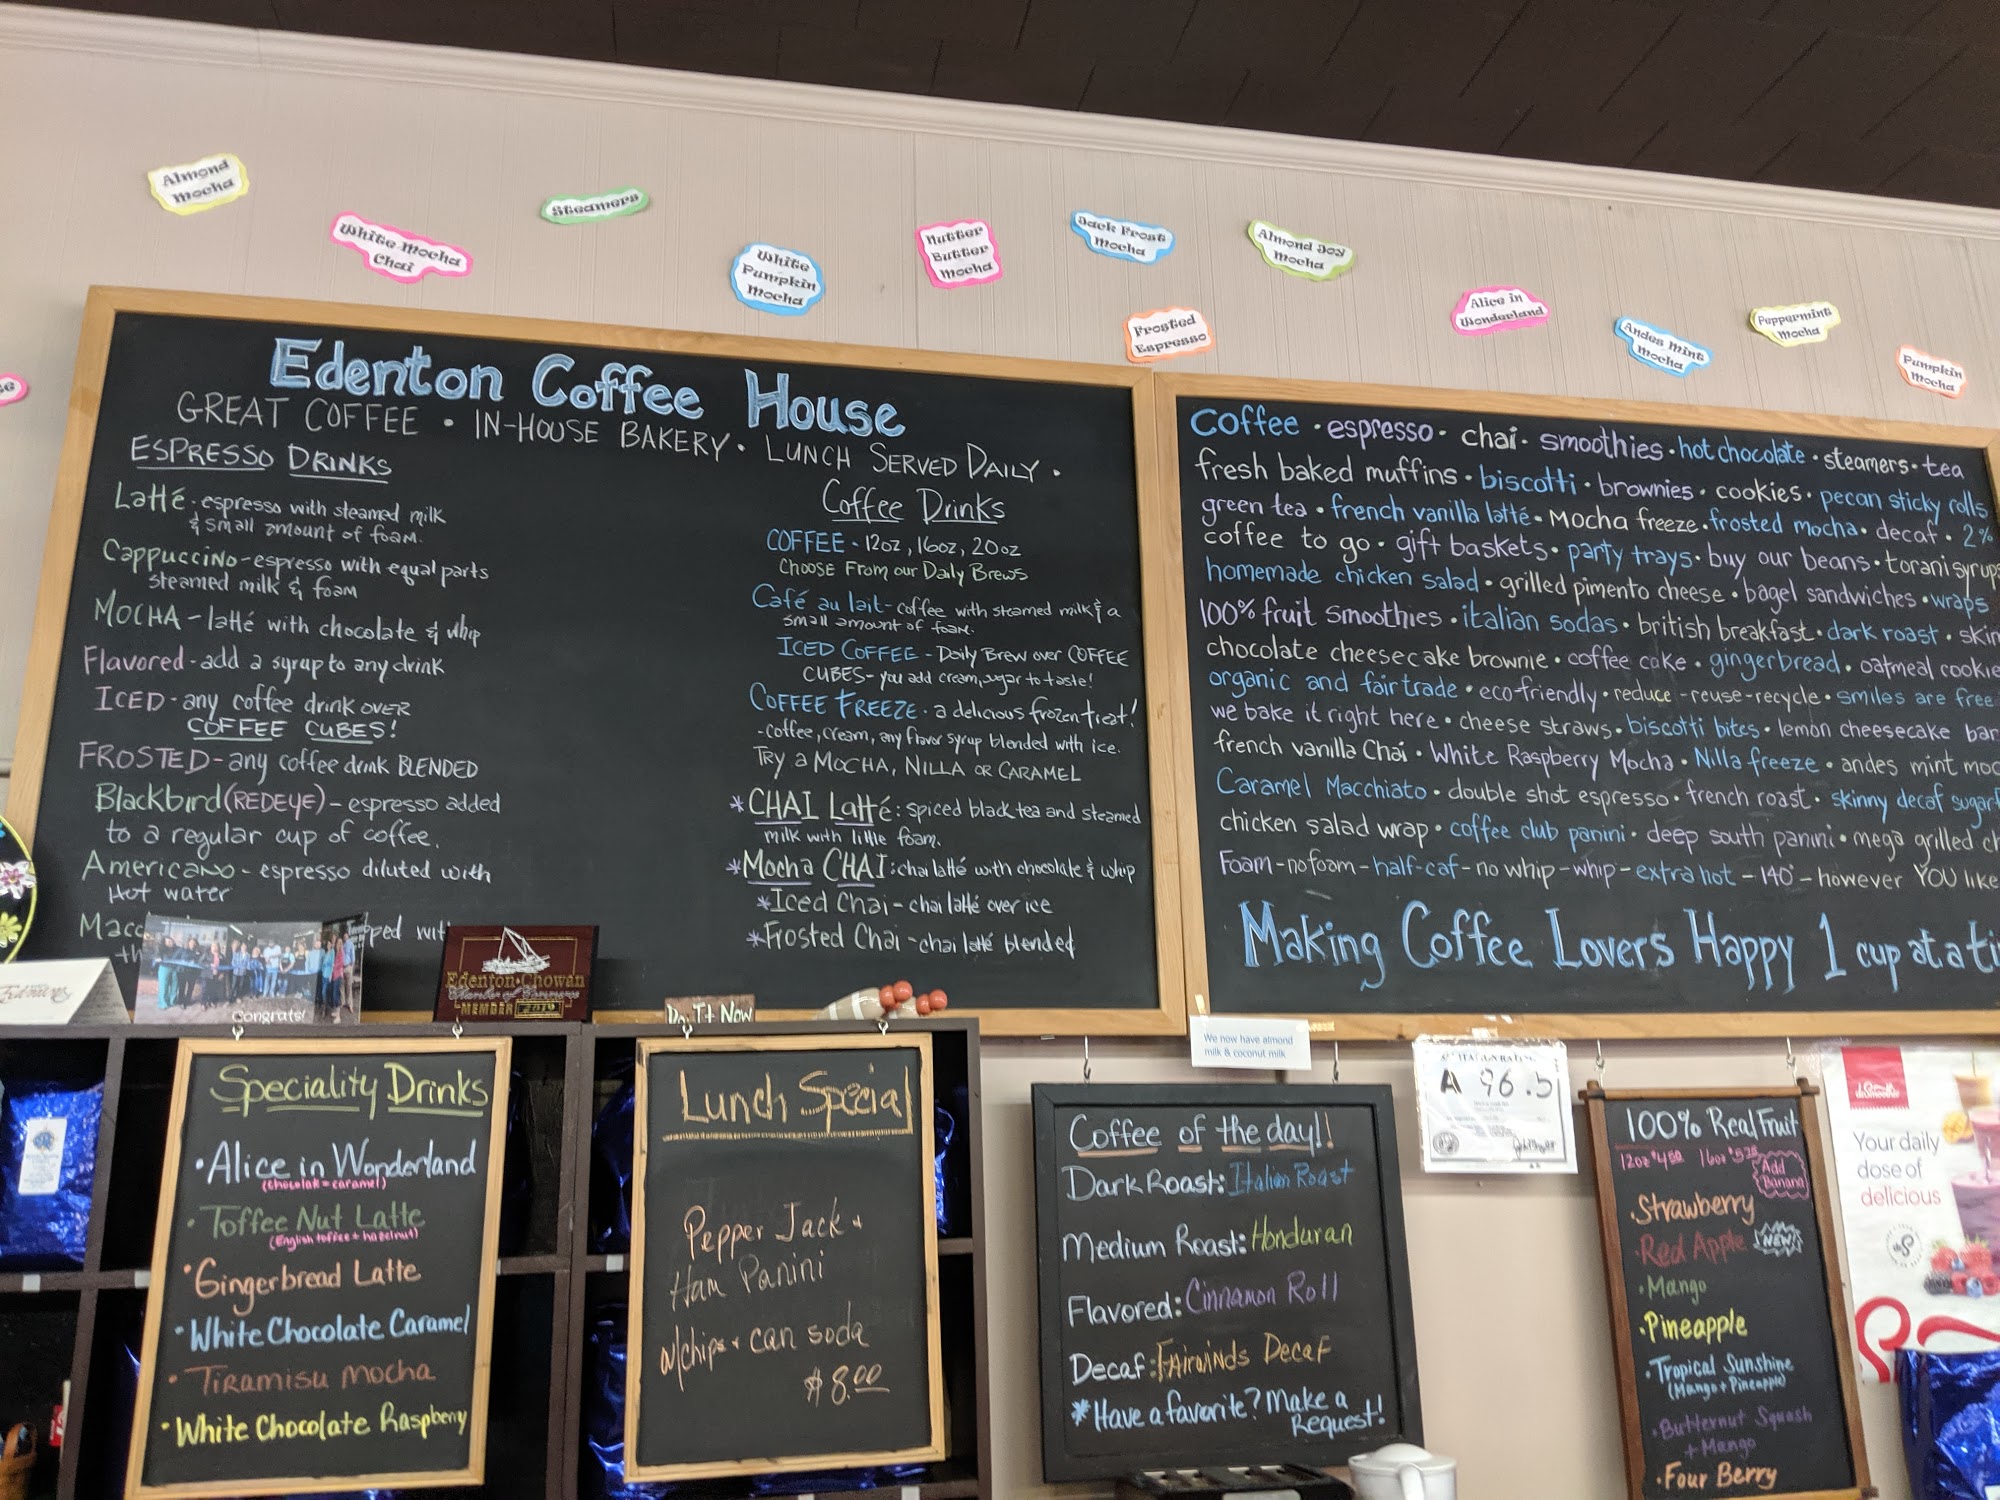 Almond
Mocha
White Mocha
Chai
Steamers
White
Pumpkin
Mocha
Nutter
Butter
Mocha
Jack Frost
Mocha
Frosted
Espresso
Almond Joy
Mocha
Alice in
Wonderland
Andes Mint
Mocha
Peppermint
Mocha
Pumpkin
Mocha
Edenton Coffee House
GREAT COFFEE • IN-HOUSE BAKERY • LUNCH SERVED DAILY •
ESPRESSO DRINKS
Latté - espresso with steamed milk
& small amount of foam.
Cappuccino - espresso with equal parts
steamed milk & foam
MOCHA - latté with chocolate & whip
Flavored - add a syrup to any drink
ICED - any coffee drink OVER
COFFEE CUBES!
FROSTED - any coffee drink BLENDED
Blackbird (REDEYE) - espresso added
to a regular cup of coffee.
Americano - espresso diluted with
Hot water
Coffee Drinks
COFFEE - 12oz, 16oz, 20oz
CHOOSE FROM our Daily Brews
Café au lait - coffee with steamed milk & a
small amount of foam.
ICED COFFEE - Daily Brew over COFFEE
CUBES - you add cream, sugar to taste!
COFFEE FREEZE - a delicious frozen treat!
- coffee, cream, any flavor syrup blended with ice.
TRY a MOCHA, NILLA OR CARAMEL
*CHAI Latté: spiced black tea and steamed
milk with little foam.
*Mocha CHAI: chai latté with chocolate & whip
*Iced Chai - chai latté over ice
*Frosted Chai - chai latté blended
Coffee • espresso • chai • smoothies • hot chocolate • steamers • tea
fresh baked muffins • biscotti • brownies • cookies • pecan sticky rolls
green tea • french vanilla latté • Mocha freeze • frosted mocha • decaf • 2%
coffee to go • gift baskets • party trays • buy our beans • torani syrups
homemade chicken salad • grilled pimento cheese • bagel sandwiches • wraps
100% fruit smoothies • italian sodas • british breakfast • dark roast • skin
chocolate cheesecake brownie • coffee cake • gingerbread • oatmeal cookie
organic and fair trade • eco-friendly • reduce - reuse - recycle • smiles are free
we bake it right here • cheese straws • biscotti bites • lemon cheesecake bar
french vanilla Chai • White Raspberry Mocha • Nilla freeze • andes mint moc
Caramel Macchiato • double shot espresso • french roast • skinny decaf sugarf
chicken salad wrap • coffee club panini • deep south panini • mega grilled ch
Foam - no foam - half-caf - no whip - whip - extra hot - 140° - however YOU like
Making Coffee Lovers Happy 1 cup at a ti
Congrats!
Edenton•Chowan
Chamber of Commerce
MEMBER 2019
Do It Now
We now have almond
milk & coconut milk
A 96.5
Speciality Drinks
• Alice in Wonderland
(chocolate + caramel)
• Toffee Nut Latte
(English toffee + hazelnut)
• Gingerbread Latte
• White Chocolate Caramel
• Tiramisu Mocha
• White Chocolate Raspberry
Lunch Special
Pepper Jack +
Ham Panini
w/chips + can soda
$8.00
Coffee of the day!!
Dark Roast: Italian Roast
Medium Roast: Honduran
Flavored: Cinnamon Roll
Decaf: Fairwinds Decaf
*Have a favorite? Make a
Request!
100% Real Fruit
Add
Banana
• Strawberry
• Red Apple NEW
• Mango
• Pineapple
• Tropical Sunshine
(Mango + Pineapple)
• Butternut Squash
+ Mango
• Four Berry
Your daily
dose of
delicious